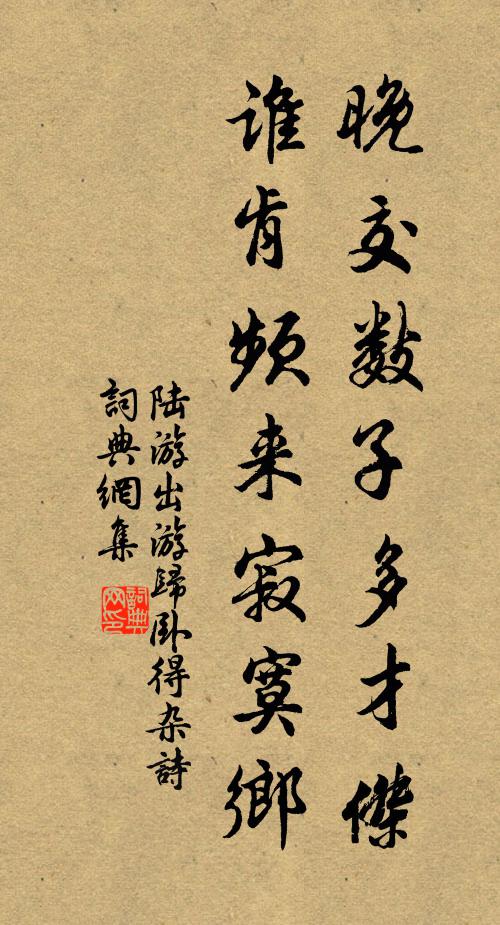 晚交数子多才傑
谁肯频来寂寞鄉
陆游出游歸卧得杂詩
詞典網集
詞典网印